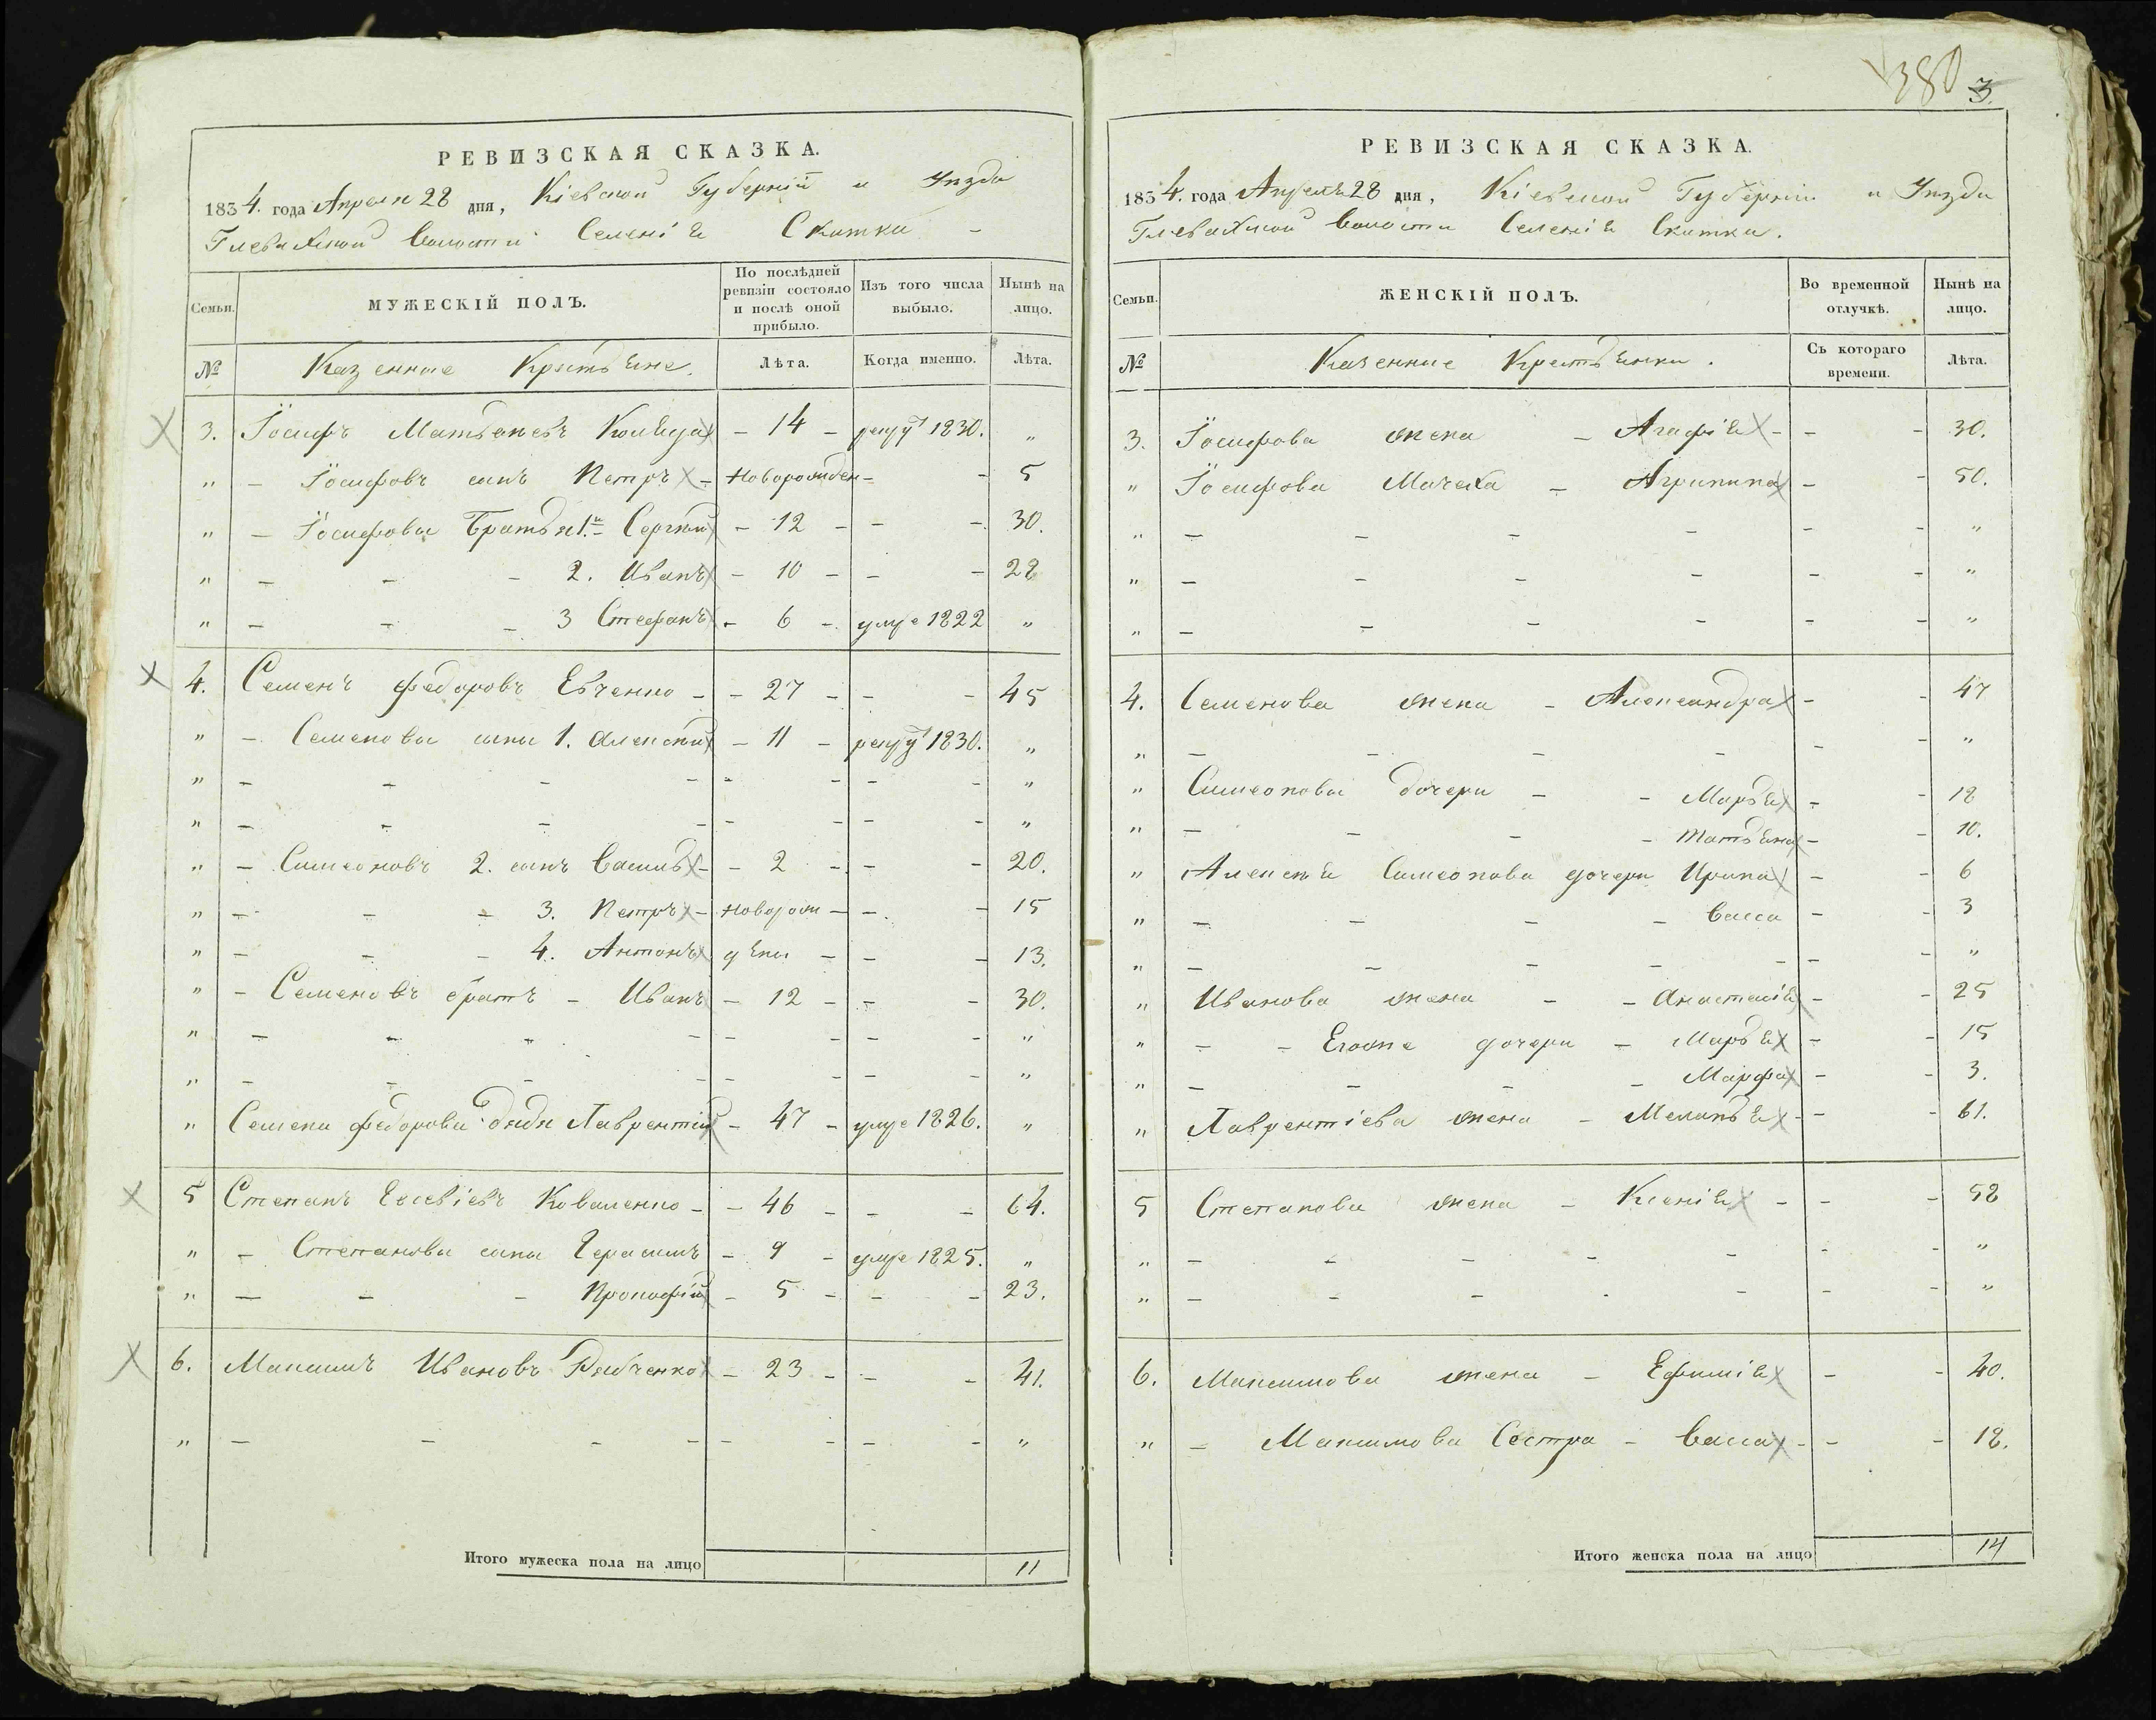 РЕВИЗСКАЯ СКАЗКА.
1834. года Апреля 28 дня, Кіевской Губерніи и Уезда
Глевахской Волости Селенія Скитки -
Семьи. МУЖЕСКІЙ ПОЛЪ. По послѣдней ревизіи состояло и послѣ оной прибыло. Изъ того числа выбыло. Нынѣ на лицо.
№ Казенные Крестьяне. Лѣта. Когда именно. Лѣта.
3. Іосифъ Матвеевъ - 14 - рекру 1830. „
„ - Іосифовъ сынъ Петръ - Новорожден - - 5
„ - Іосифовы Братья 1.й Сергей - 12 - - - 30.
„ - - - 2. Иванъ - 10 - - - 28
„ - - - 3 Стефанъ - 6 - умре 1822 „
4. Семенъ Федоровъ Евченко - - 27 - - - 45
„ - Семеновы сыны 1. Алексей - 11 - рекру 1830. „
„ - - - - - - - - „
„ - - - - - - - - „
„ - Симеоновъ 2. сынъ Василь - - 2 - - - 20.
„ - - - 3. Петръ - Новорож - - - 15
„ - - - 4. Антонъ дены - - - 13.
„ - Семеновъ братъ - Иванъ - 12 - - - 30.
„ - - - - - - - - „
„ - - - - - - - - „
„ Семена Федорова дядя Лаврентій - 47 - умре 1826. „
5 Степанъ Евсевіевъ Коваленко - - 46 - - - 64.
„ - Степановы сыны Герасимъ - 9 - умре 1825. „
„ - - - Прокофій - 5 - - - 23.
6. Максимъ Ивановъ Рябченко - 23 - - - 41.
„ - - - - - - - - „
Итого мужеска пола на лицо 11
380 3.
РЕВИЗСКАЯ СКАЗКА.
1834. года Апреля 28 дня, Кіевской Губерніи и Уезда
Глевахской Волости Селенія Скитки.
Семьи. ЖЕНСКІЙ ПОЛЪ. Во временной отлучкѣ. Нынѣ на лицо.
№ Казенные Крестьянки. Съ котораго времени. Лѣта.
3. Іосифова жена - Агафія - - - 30.
„ Іосифова Мачеха - Агрипина - - 50.
„ - - - - - - „
„ - - - - - - „
„ - - - - - - „
4. Семенова жена - Александра - - 47
„ - - - - - - „
„ Симеоновы дочери - - Марья - - 18
„ - - - - Татьяна - - 10.
„ Алексея Симеонова дочери Ирина - - 6
„ - - - - Васса - - 3
„ - - - - - - - „
„ Иванова жена - - Анастасія - - 25
„ - - Егоже дочери - Марья - - 15
„ - - - - Марфа - - 3.
„ Лаврентіева жена - Меланья - - - 61.
5 Степанова жена - Ксенія - - - 58
„ - - - - - - - „
„ - - - - - - - „
6. Максимова жена - Ефимія - - 40.
„ - Максимова Сестра - Васса - - - 18.
Итого женска пола на лицо 14